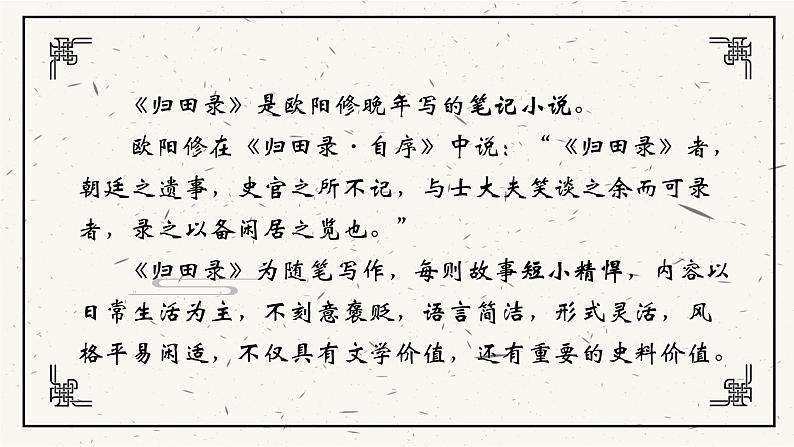 《归田录》是欧阳修晚年写的笔记小说。
欧阳修在《归田录·自序》中说：“《归田录》者，
朝廷之遗事，史官之所不记，与士大夫笑谈之余而可录
者，录之以备闲居之览也。”
《归田录》为随笔写作，每则故事短小精悍，内容以
日常生活为主，不刻意褒贬，语言简洁，形式灵活，风
格平易闲适，不仅具有文学价值，还有重要的史料价值。